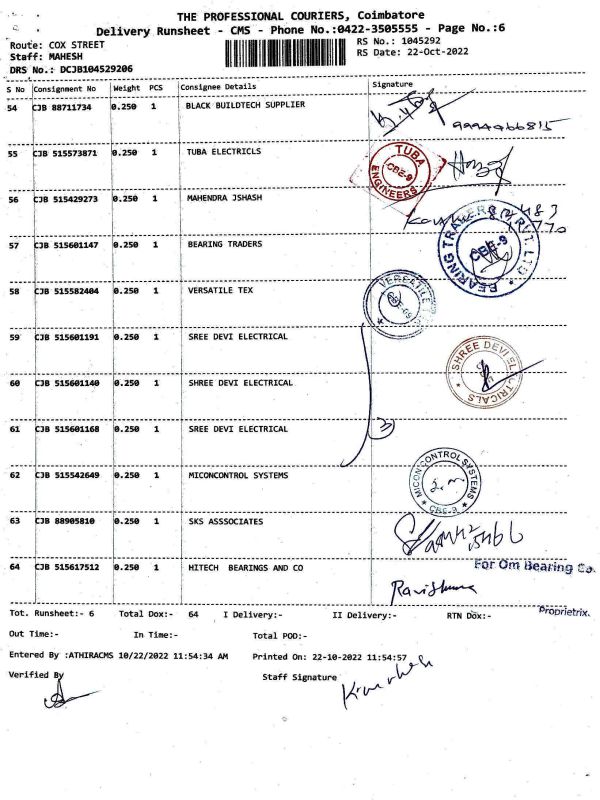 THE PROFESSIONAL COURIERS, Coimbatore
Delivery Runsheet - CMS - Phone No.:0422-3505555 - Page No.:6
Route: COX STREET
RS No.: 1045292
Staff: MAHESH
RS Date: 22-Oct-2022
DRS No.: DCJB104529206
S No Consignment No Weight PCS Consignee Details Signature
54 CJB 88711734 0.250 1 BLACK BUILDTECH SUPPLIER
55 CJB 515573871 0.250 1 TUBA ELECTRICLS
TUBA ENGINEERS CBE-9
56 CJB 515429273 0.250 1 MAHENDRA JSHASH
57 CJB 515601147 0.250 1 BEARING TRADERS
CBE-9
58 CJB 515582404 0.250 1 VERSATILE TEX
VERSATILE
59 CJB 515601191 0.250 1 SREE DEVI ELECTRICAL
SHREE DEVI ELECTRICALS
60 CJB 515601140 0.250 1 SHREE DEVI ELECTRICAL
61 CJB 515601168 0.250 1 SREE DEVI ELECTRICAL
3
62 CJB 515542649 0.250 1 MICONCONTROL SYSTEMS
MICON CONTROL SYSTEMS CBE-9
63 CJB 88905810 0.250 1 SKS ASSSOCIATES
64 CJB 515617512 0.250 1 HITECH BEARINGS AND CO
For Om Bearing Co.
Proprietrix.
Tot. Runsheet:- 6 Total Dox:- 64 I Delivery:- II Delivery:- RTN Dox:-
Out Time:- In Time:- Total POD:-
Entered By :ATHIRACMS 10/22/2022 11:54:34 AM Printed On: 22-10-2022 11:54:57
Verified By Staff Signature